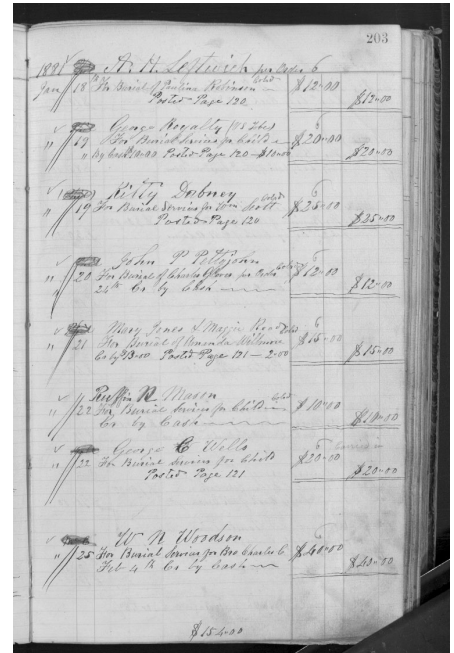 203
1891 A. H. Leftwich per Order 6
Jan 18th For Burial of Pauline Robinson Cold $12-00
Posted Page 120 $12-00
George Royalty
" 19 For Burial Services for Child $20-00
" By Cash 10-00 Posted Page 120 - $10-00 $20-00
Kitty Dabney
19 For Burial Services for Tom Scott Cold $25-00
Posted Page 120 $25-00
John P Pettyjohn
" 20 For Burial of Charles per Order $12-00
24th Cr by Cash $12-00
Mary Jones & Maggie Cold
" 21 For Burial of $15-00
Cr by 13-00 Posted Page 121 - 2-00 $15-00
Ruffin N Mason
" 22 For Burial Services for Child Cold $10-00
Cr. by Cash $10-00
George C Wells
" 22 For Burial Services for Child $20-00
Posted Page 121 $20-00
W N Woodson
" 25 For Burial Services for Bro Charles C $40-00
Feb 4th Cr by Cash $40-00
$154-00